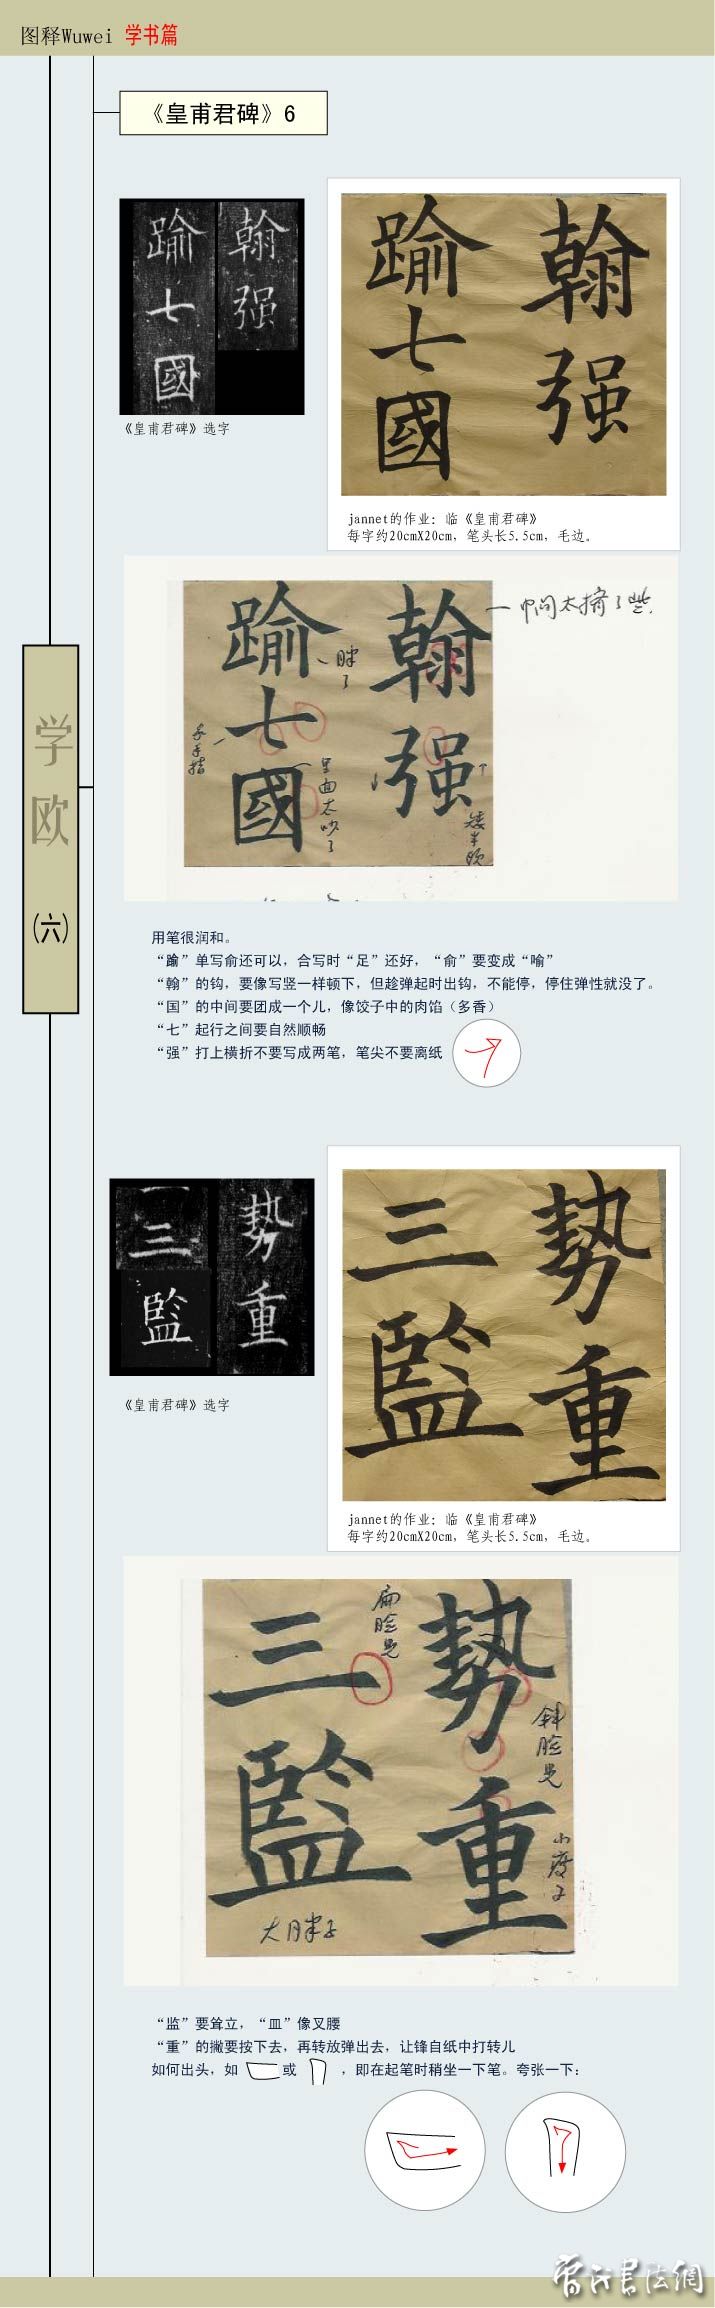 图释Wuwei 学书篇
《皇甫君碑》6
翰强
踰七國
翰强
踰七國
《皇甫君碑》选字
jannet的作业：临《皇甫君碑》
每字约20cmX20cm，笔头长5.5cm，毛边。
中间太挤了些.
翰强
踰七國
胖了
里面太吵了
矮半头
学欧
(六)
用笔很润和。
“踰”单写俞还可以，合写时“足”还好，“俞”要变成“喻”
“翰”的钩，要像写竖一样顿下，但趁弹起时出钩，不能停，停住弹性就没了。
“国”的中间要团成一个儿，像饺子中的肉馅（多香）
“七”起行之间要自然顺畅
“强”打上横折不要写成两笔，笔尖不要离纸
勢重
三監
勢重
三監
《皇甫君碑》选字
jannet的作业：临《皇甫君碑》
每字约20cmX20cm，笔头长5.5cm，毛边。
扁脸儿
勢重
三監
斜脸儿
小瘦子
大胖子
“监”要耸立，“皿”像叉腰
“重”的撇要按下去，再转放弹出去，让锋自纸中打转儿
如何出头，如 或 ，即在起笔时稍坐一下笔。夸张一下：
书法網